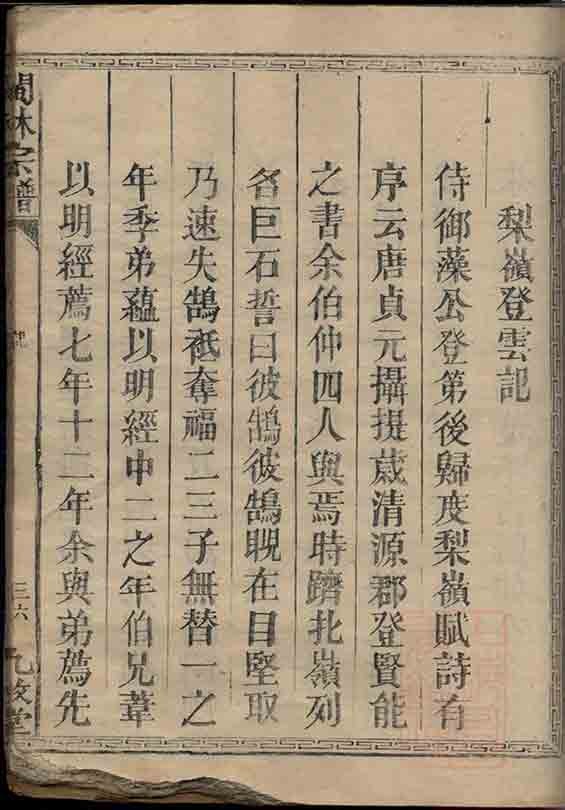 梨嶺登雲記
侍御藻公登第後歸度梨嶺賦詩有
序云唐貞元攝提歲清源郡登賢能
之書余伯仲四人與焉時躋北嶺列
名巨石誓曰彼鵠彼鵠睨在目堅取
乃速失鵠祇奪福二三子無替一之
年季弟蘊以明經中二之年伯兄葦
以明經薦七年十二年余與弟薦先
林宗譜
記
三六
九牧堂